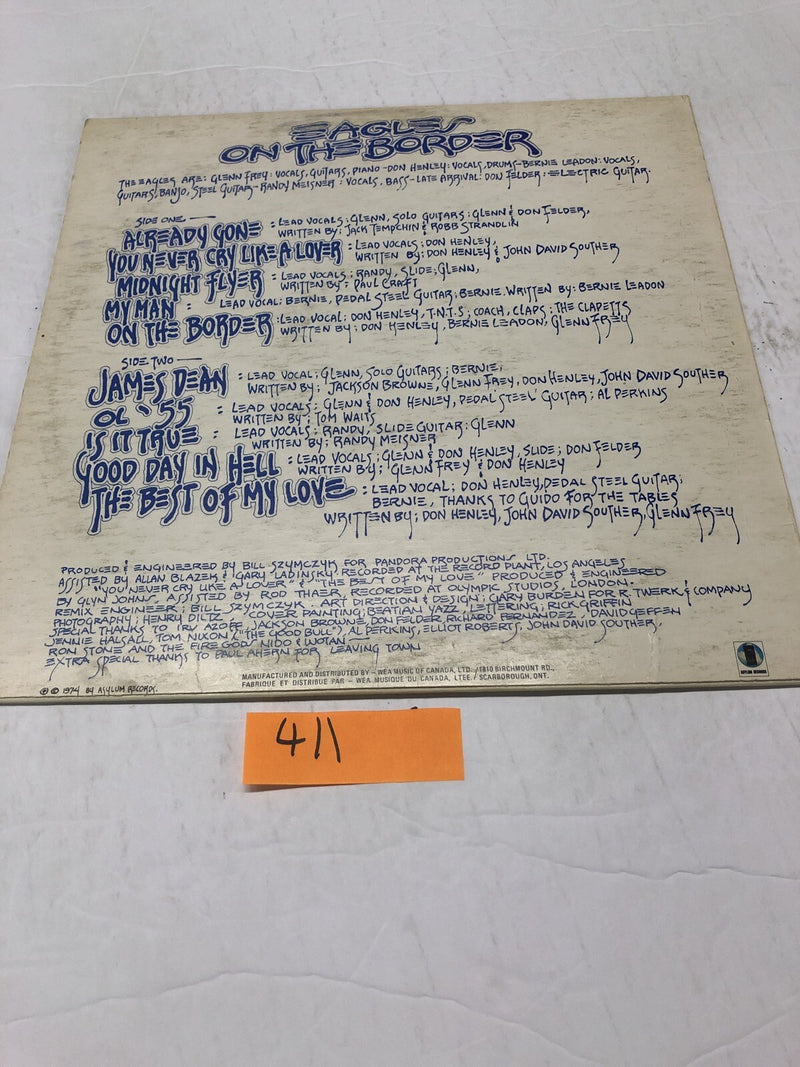 EAGLES
ON THE BORDER
THE EAGLES ARE: GLENN FREY: VOCALS, GUITARS, PIANO-DON HENLEY: VOCALS, DRUMS-BERNIE LEADON: VOCALS,
GUITARS, BANJO, STEEL GUITAR-RANDY MEISNER: VOCALS, BASS-LATE ARRIVAL: DON FELDER: ELECTRIC GUITAR.
SIDE ONE
ALREADY GONE : LEAD VOCALS; GLENN, SOLO GUITARS; GLENN & DON FELDER,
WRITTEN BY; JACK TEMPCHIN & ROBB STRANDLIN
YOU NEVER CRY LIKE A LOVER : LEAD VOCALS; DON HENLEY,
WRITTEN BY; DON HENLEY & JOHN DAVID SOUTHER
MIDNIGHT FLYER : LEAD VOCALS; RANDY, SLIDE; GLENN,
WRITTEN BY; PAUL CRAFT
MY MAN : LEAD VOCAL: BERNIE, PEDAL STEEL GUITAR; BERNIE. WRITTEN BY: BERNIE LEADON
ON THE BORDER : LEAD VOCAL: DON HENLEY, T.N.T.S; COACH, CLAPS; THE CLAPETTS
WRITTEN BY; DON HENLEY, BERNIE LEADON, GLENN FREY
SIDE TWO
JAMES DEAN : LEAD VOCAL; GLENN, SOLO GUITARS; BERNIE,
WRITTEN BY; JACKSON BROWNE, GLENN FREY, DON HENLEY, JOHN DAVID SOUTHER
OL '55 : LEAD VOCALS; GLENN & DON HENLEY, PEDAL STEEL GUITAR; AL PERKINS
WRITTEN BY; TOM WAITS
IS IT TRUE : LEAD VOCALS; RANDY, SLIDE GUITAR: GLENN
WRITTEN BY; RANDY MEISNER
GOOD DAY IN HELL : LEAD VOCALS; GLENN & DON HENLEY, SLIDE; DON FELDER
WRITTEN BY; GLENN FREY & DON HENLEY
THE BEST OF MY LOVE : LEAD VOCAL; DON HENLEY, PEDAL STEEL GUITAR;
BERNIE, THANKS TO GUIDO FOR THE TABLES
WRITTEN BY; DON HENLEY, JOHN DAVID SOUTHER, GLENN FREY
PRODUCED & ENGINEERED BY BILL SZYMCZYK FOR PANDORA PRODUCTIONS LTD.
ASSISTED BY ALLAN BLAZEK & GARY "LADINSKY" RECORDED AT THE RECORD PLANT, LOS ANGELES
"YOU NEVER CRY LIKE A LOVER" & "THE BEST OF MY LOVE" PRODUCED & ENGINEERED
BY GLYN JOHNS ASSISTED BY ROD THAER, RECORDED AT OLYMPIC STUDIOS, LONDON.
REMIX ENGINEER; BILL SZYMCZYK. ART DIRECTION & DESIGN; GARY BURDEN FOR R. TWERK & COMPANY
PHOTOGRAPHY; HENRY DILTZ COVER PAINTING; BEATIAN YAZZ, LETTERING; RICK GRIFFIN
SPECIAL THANKS TO IRV AZOFF, JACKSON BROWNE, DON FELDER, RICHARD FERNANDEZ, DAVID GEFFEN
JENNIE HALSALL, TOM NIXON ("THE GOOD BULL"), AL PERKINS, ELLIOT ROBERTS, JOHN DAVID SOUTHER,
RON STONE AND THE FIRE GODS NIDO & WOTAN
EXTRA SPECIAL THANKS TO PAUL AHERN FOR LEAVING TOWN
MANUFACTURED AND DISTRIBUTED BY - WEA MUSIC OF CANADA, LTD. / 1810 BIRCHMOUNT RD.,
FABRIQUE ET DISTRIBUE PAR - WEA MUSIQUE DU CANADA, LTEE. / SCARBOROUGH, ONT.
℗ © 1974 BY ASYLUM RECORDS.
ASYLUM RECORDS
411